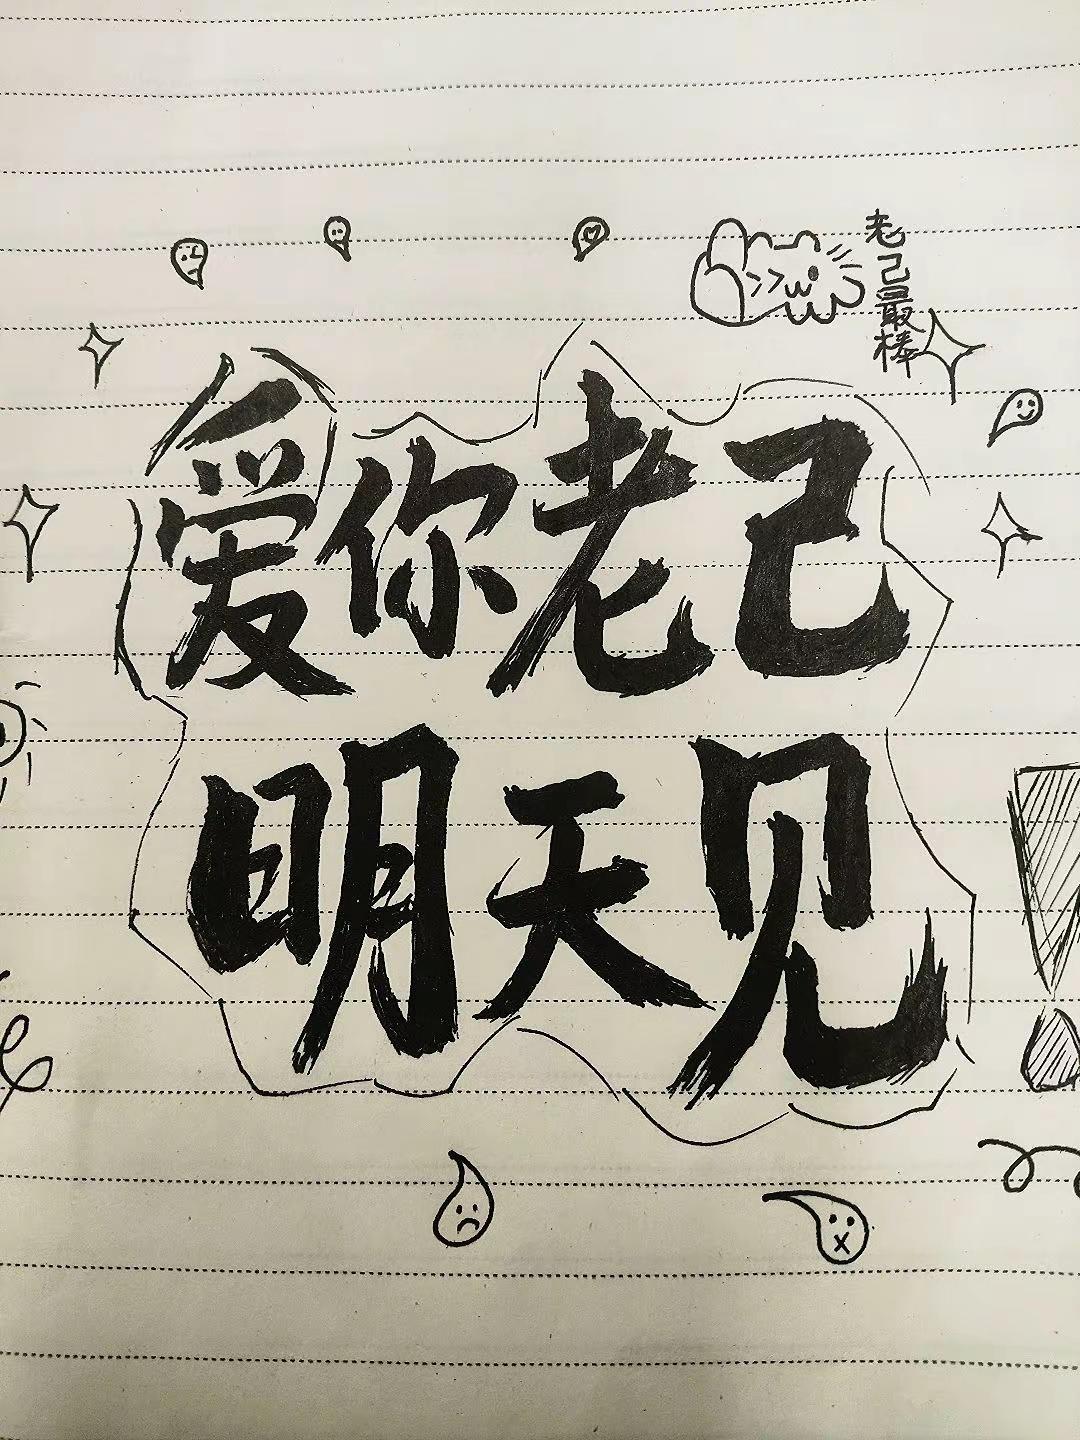 老己最棒
爱你老己
明天见